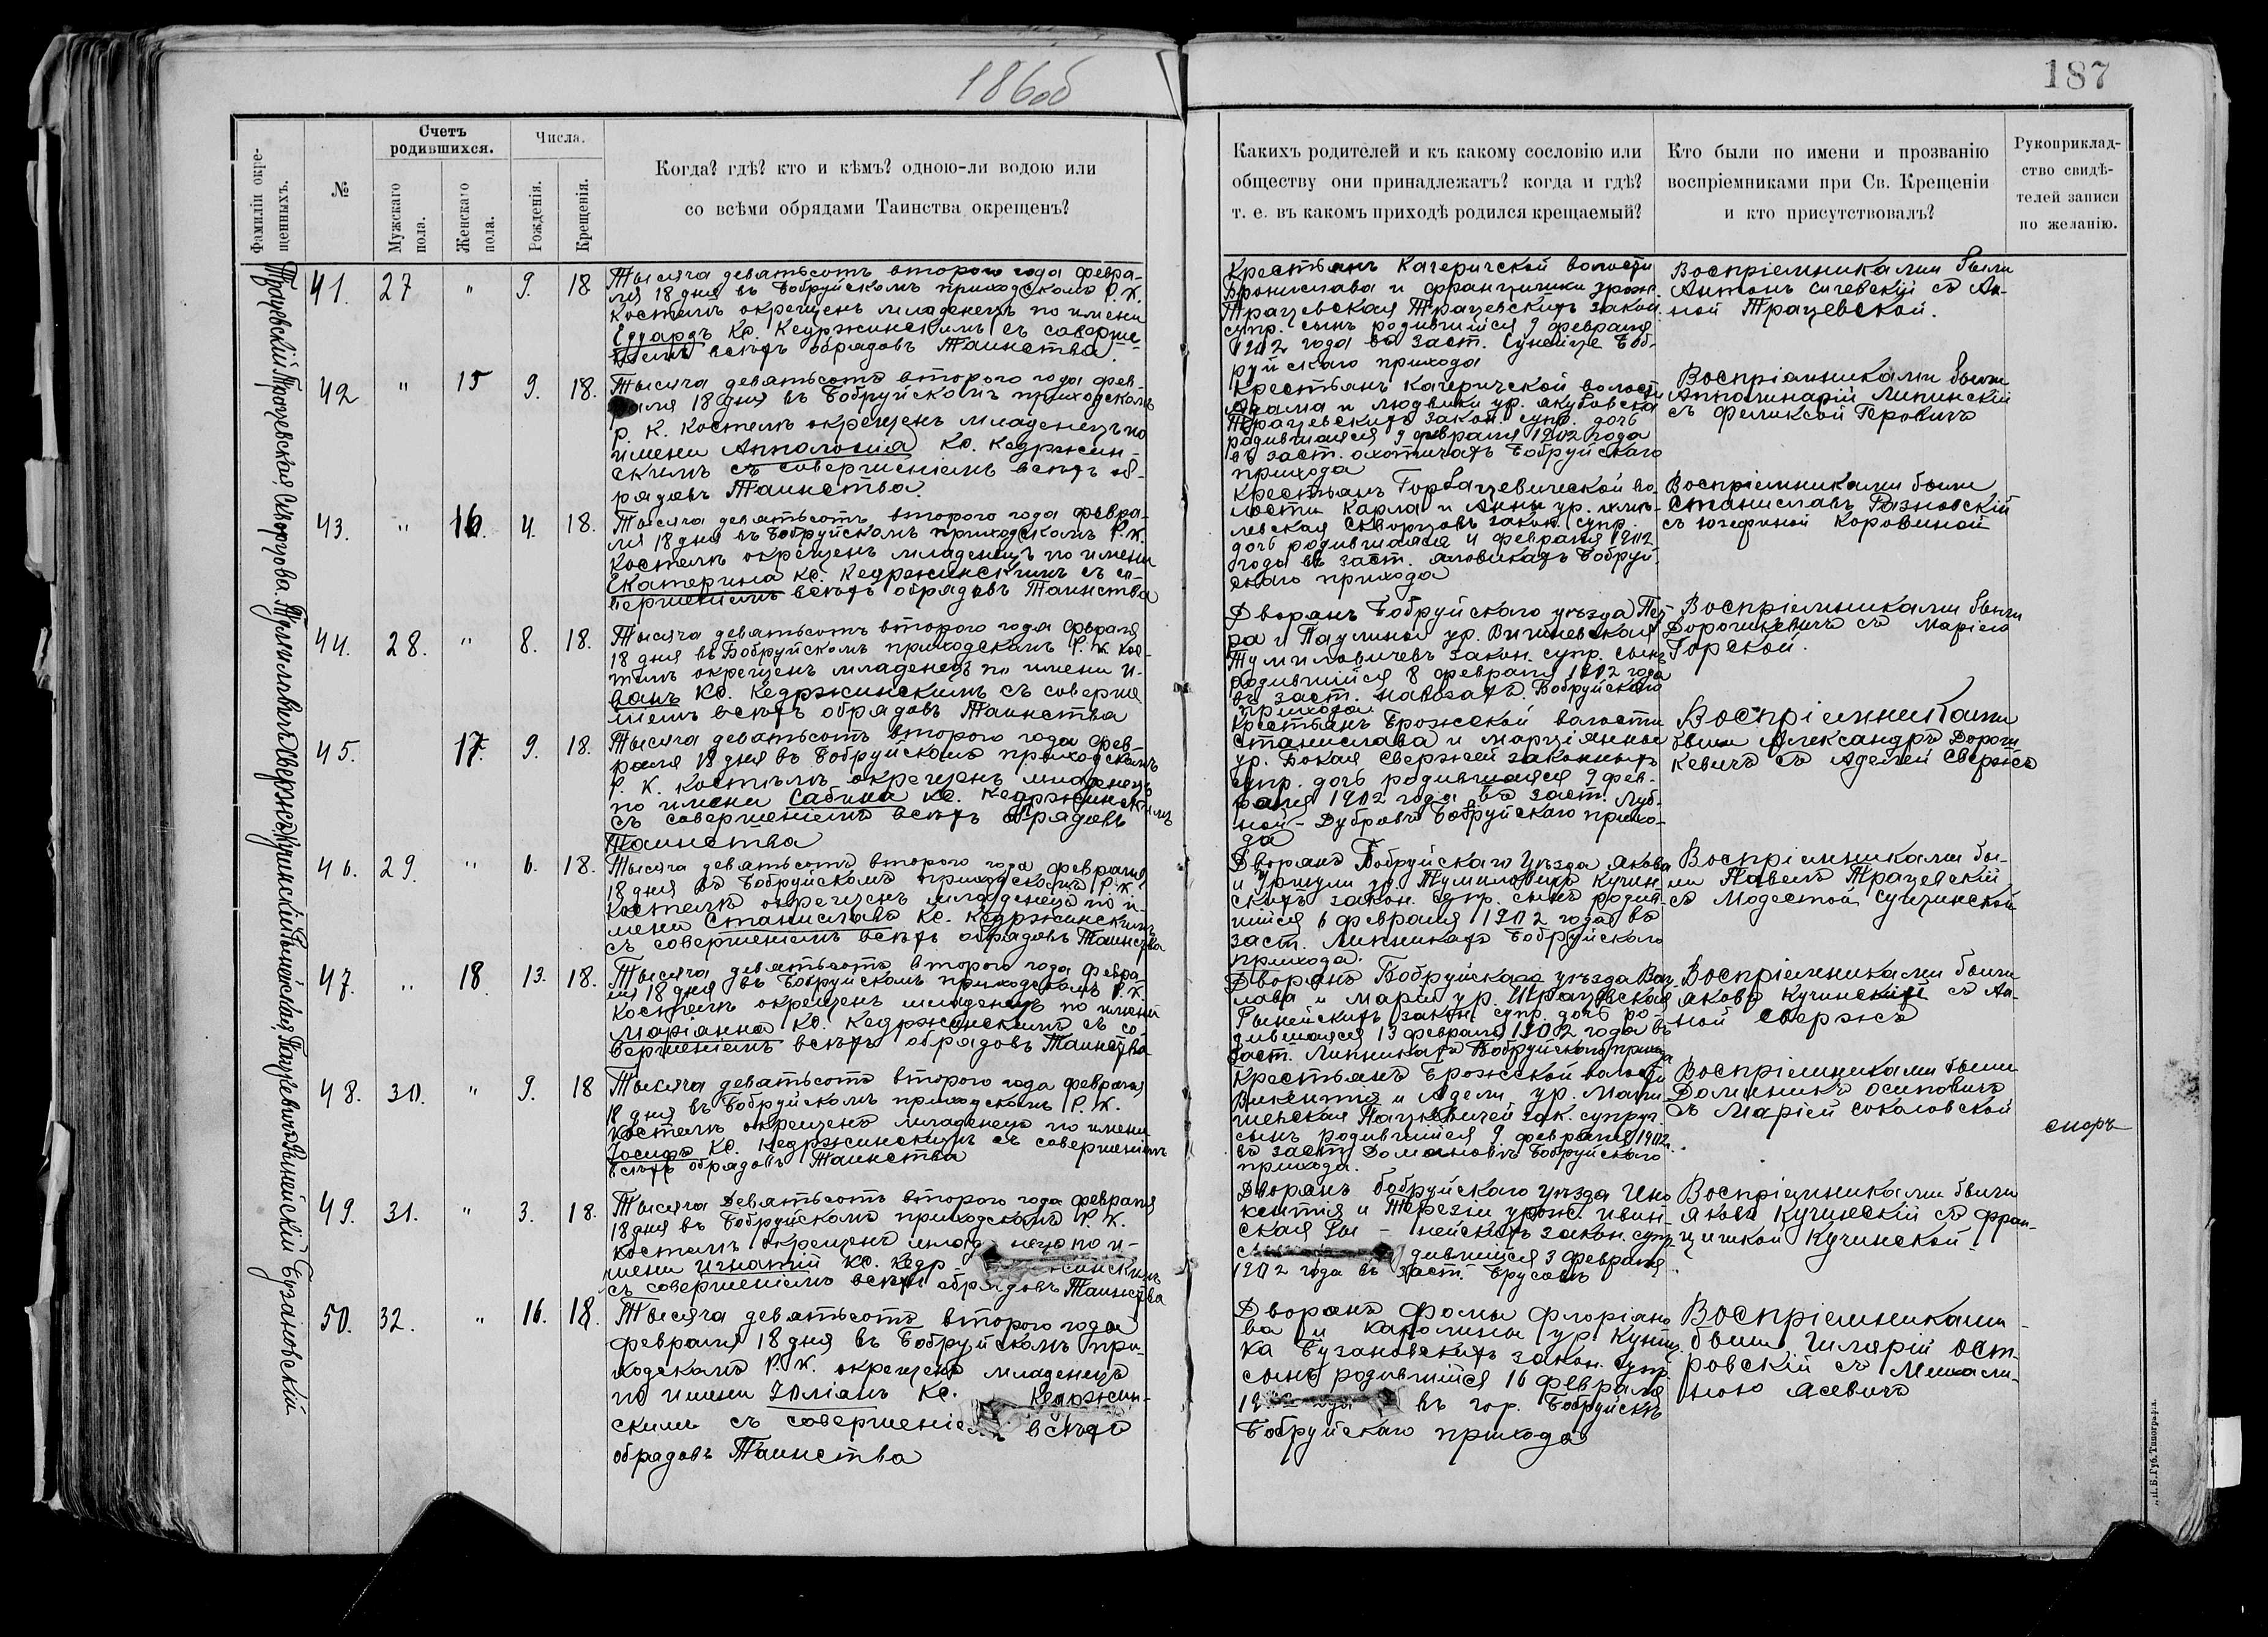 186об
187
Фамиліи окре-
щенныхъ.
№
Счетъ
родившихся.
Мужскаго
пола.
Женскаго
пола.
Числа.
Рожденія.
Крещенія.
Когда? гдѣ? кто и кѣмъ? одною-ли водою или
со всѣми обрядами Таинства окрещенъ?
Какихъ родителей и къ какому сословію или
обществу они принадлежатъ? когда и гдѣ?
т. е. въ какомъ приходѣ родился крещаемый?
Кто были по имени и прозванію
воспріемниками при Св. Крещеніи
и кто присутствовалъ?
Рукоприклад-
ство свидѣ-
телей записи
по желанію.
41. 27 " 9. 18
Тысяча девятьсотъ второго года февра-
ля 18 дня въ Бобруйскомъ приходскомъ Р. К.
Костелѣ окрещенъ младенецъ по имени
Едуардъ Кс. Кедржинскимъ съ соверше-
ніемъ всѣхъ обрядовъ Таинства.
Крестьянъ Качеричской волости
Бронислава и Францишки урож.
Трацевская Трацевскихъ закон.
супр. сынъ родившійся 9 февраля
1902 года въ заст. Боб-
руйскаго прихода
Воспріемниками были
Антонъ Сичевскій съ Ан-
ной Трацевской.
42 " 15 9. 18.
Тысяча девятьсотъ второго года фев-
раля 18 дня въ Бобруйскомъ приходскомъ
Р. К. Костелѣ окрещенъ младенецъ по
имени Апполонія Кс. Кедржин-
скимъ съ совершеніемъ всѣхъ об-
рядовъ Таинства.
Крестьянъ Качеричской волости
Адама и Людвики ур. Якубовска
Трацевскихъ закон. супр. дочь
родившаяся 9 февраля 1902 года
въ заст. Охотичахъ Бобруйскаго
прихода
Воспріемниками были
Апполинарій Липинскій
съ Феликсой Герович
43. " 16. 4. 18.
Тысяча девятьсотъ второго года февра-
ля 18 дня въ Бобруйскомъ приходскомъ Р. К.
Костелѣ окрещенъ младенецъ по имени
Екатерина Кс. Кедржинскимъ съ со-
вершеніемъ всѣхъ обрядовъ Таинства
Крестьянъ Горбацевической во-
лости Карла и Анны ур.
левская Скворцовъ закон. супр.
дочь родившаяся 4 февраля 1902
года въ заст. Яловикахъ Бобруй-
скаго прихода
Воспріемниками были
Станиславъ Разновскій
съ Юзефиной Коровиной
44. 28. " 8. 18.
Тысяча девятьсотъ второго года февраля
18 дня въ Бобруйскомъ приходскомъ Р. К. Кос-
телѣ окрещенъ младенецъ по имени И-
ванъ Кс. Кедржинскимъ съ соверше
ніемъ всѣхъ обрядовъ Таинства
Дворянъ Бобруйскаго уѣзда Пет-
ра и Паулины ур. Вишневская
Тумиловичевъ закон. супр. сынъ
родившійся 8 февраля 1902 года
въ заст. Бобруйскаго
прихода
Воспріемниками были
Дорошкевичъ съ Маріею
Горской.
45. 17. 9. 18.
Тысяча девятьсотъ второго года фев-
раля 18 дня въ Бобруйскомъ приходскомъ
Р. К. Костелѣ окрещенъ младенецъ
по имени Сабина Кс. Кедржинскимъ
съ совершеніемъ всѣхъ обрядовъ
Таинства
Крестьянъ Брожской волости
Станислава и Марціянны
ур. Бокая Сержей законныхъ
супр. дочь родившаяся 9 фев-
раля 1902 года въ заст. Луб-
ной-Дубровѣ Бобруйскаго прихо-
да
Воспріемниками
были Александръ Дорош
кевичъ съ Аделей Свержъ
46. 29. " 6. 18.
Тысяча девятьсотъ второго года февраля
18 дня въ Бобруйскомъ приходскомъ Р. К.
Костелѣ окрещенъ младенецъ по и-
мени Станиславъ Кс. Кедржинскимъ
съ совершеніемъ всѣхъ обрядовъ Таинства
Дворянъ Бобруйскаго уѣзда Якова
и Уршули ур. Тумиловичъ Кучин-
скихъ закон. супр. сынъ родив-
шійся 6 февраля 1902 года въ
заст. Липникахъ Бобруйскаго
прихода.
Воспріемниками бы-
ли Павелъ Трацевскій
съ Модестой Сущинской
47. " 18 13. 18.
Тысяча девятьсотъ второго года февра
ля 18 дня въ Бобруйскомъ приходскомъ Р. К.
Костелѣ окрещенъ младенецъ по имени
Маріанна Кс. Кедржинскимъ съ со-
вершеніемъ всѣхъ обрядовъ Таинства
Дворянъ Бобруйскаго уѣзда Вац-
лава и Маріи ур. Трацевская
Рынейскихъ закон. супр. дочь ро-
дившаяся 13 февраля 1902 года въ
заст. Липникахъ Бобруйскаго прихода
Воспріемниками были
Яковъ Кучинскій съ Ан-
ной Свержъ
48. 30. " 9. 18
Тысяча девятьсотъ второго года февраля
18 дня въ Бобруйскомъ приходскомъ Р. К.
Костелѣ окрещенъ младенецъ по имени
Іосифъ Кс. Кедржинскимъ съ совершеніемъ
всѣхъ обрядовъ Таинства
Крестьянъ Брожской волости
Викентія и Адели ур. Мали-
шевская Пацкевичей зак. супруг.
сынъ родившійся 9 февраля 1902
въ заст. Домановѣ Бобруйскаго
прихода.
Воспріемниками были
Доминикъ Осиповичъ
съ Маріей Соколовской
49. 31. " 3. 18.
Тысяча Девятьсотъ второго года февраля
18 дня въ Бобруйскомъ приходскомъ Р. К.
Костелѣ окрещенъ младенецъ по и-
мени Игнатій Кс. Кедржинскимъ
съ совершеніемъ всѣхъ обрядовъ Таинства
Дворянъ Бобруйскаго уѣзда Ино
кентія и Терезіи урож. Ивин-
ская Ры-нейскихъ закон. супр
дившійся 3 февраля
1902 года въ заст. Брусовъ
Воспріемниками были
Яковъ Кучинскій съ Фран-
цишкой Кучинской
50. 32. " 16. 18.
Тысяча девятьсотъ второго года
февраля 18 дня въ Бобруйскомъ при-
ходскомъ Р. К. окрещенъ младенецъ
по имени Юліанъ Кс. Кедржин-
скимъ съ совершеніемъ всѣхъ
обрядовъ Таинства
Дворянъ Фомы Флоріано
ва и Каролины ур.
ка Бузановскихъ закон. супр
сынъ родившійся 16 февраля
въ гор. Бобруйскѣ
Бобруйскаго прихода
Воспріемниками
были Гилярій Ост-
ровскій съ Михали-
ною Асевичъ